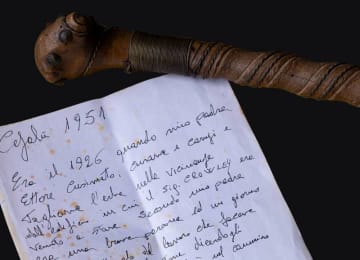 Cefalù 1951
Era il 1926 quando mio padre
Ettore Cusimato, curava i campi e
Tagliava l'erba nelle vicinanze
dell'edificio in cui il Sig. CROWLEY era
venuto a stare. Secondo mio padre
era una brava persona ed un giorno
del lavoro che faceva
dicendogli
un cammino